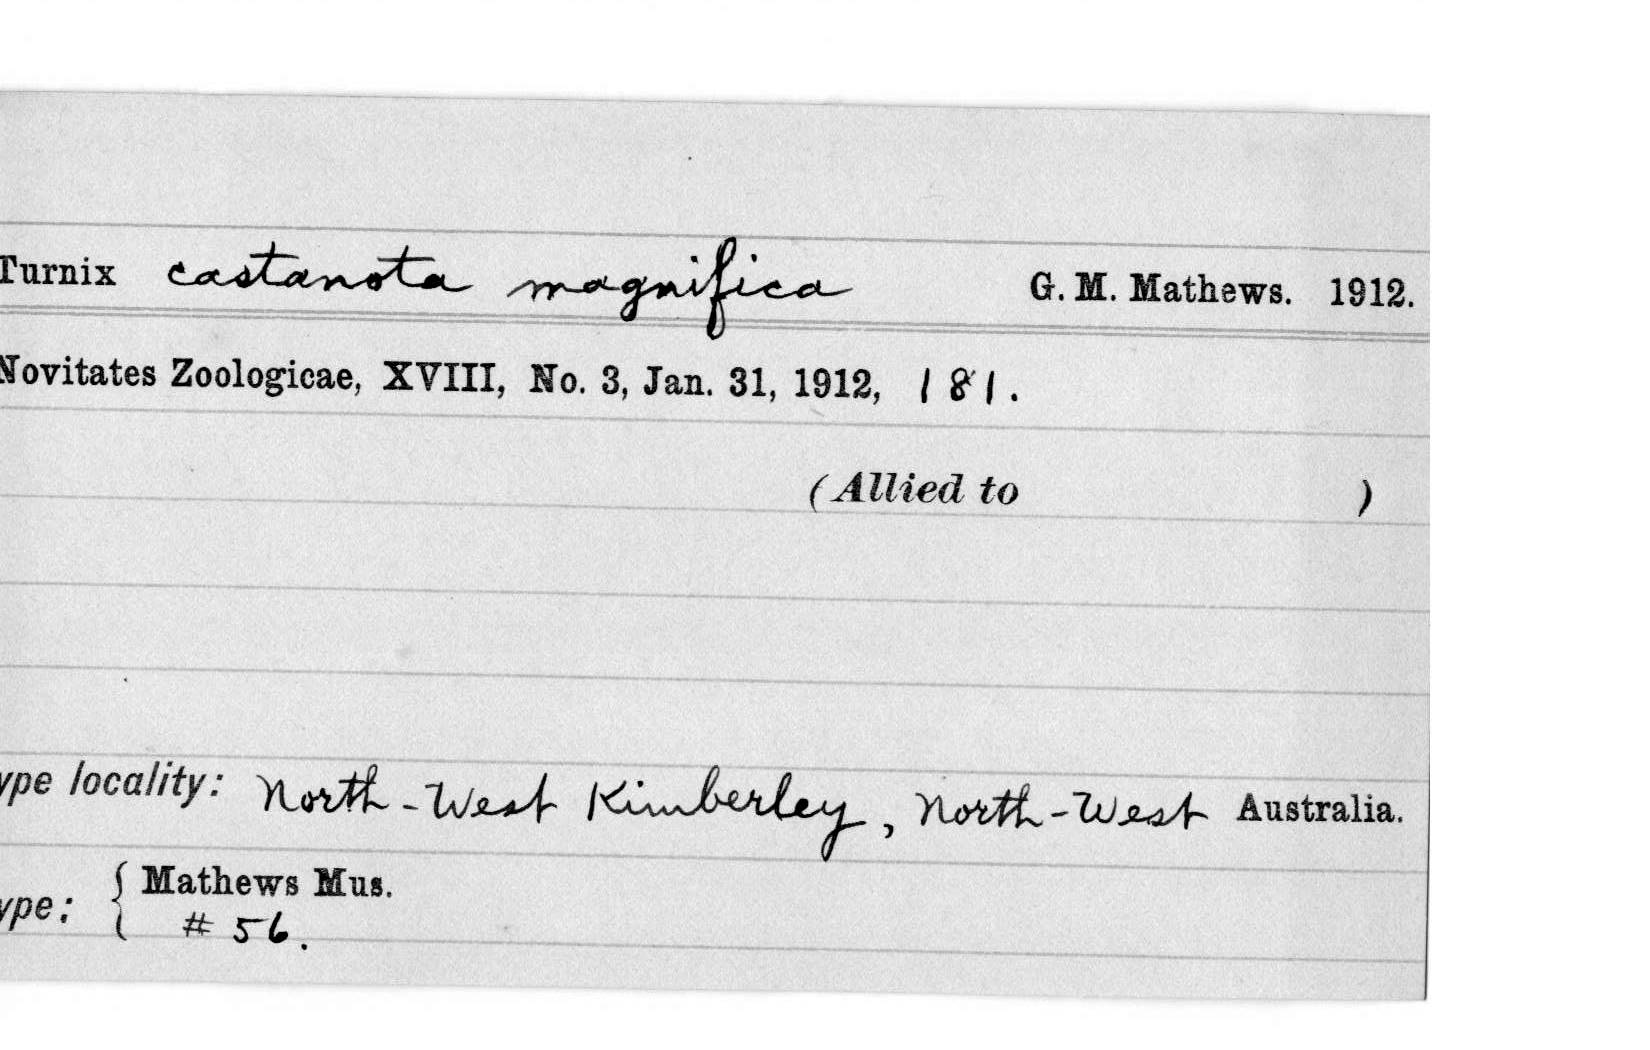 Turnix castanota magnifica G. M. Mathews. 1912.
Novitates Zoologicae, XVIII, No. 3, Jan. 31, 1912, 181.
(Allied to )
ype locality: North-West Kimberley, North-West Australia.
ype: { Mathews Mus.
# 56.